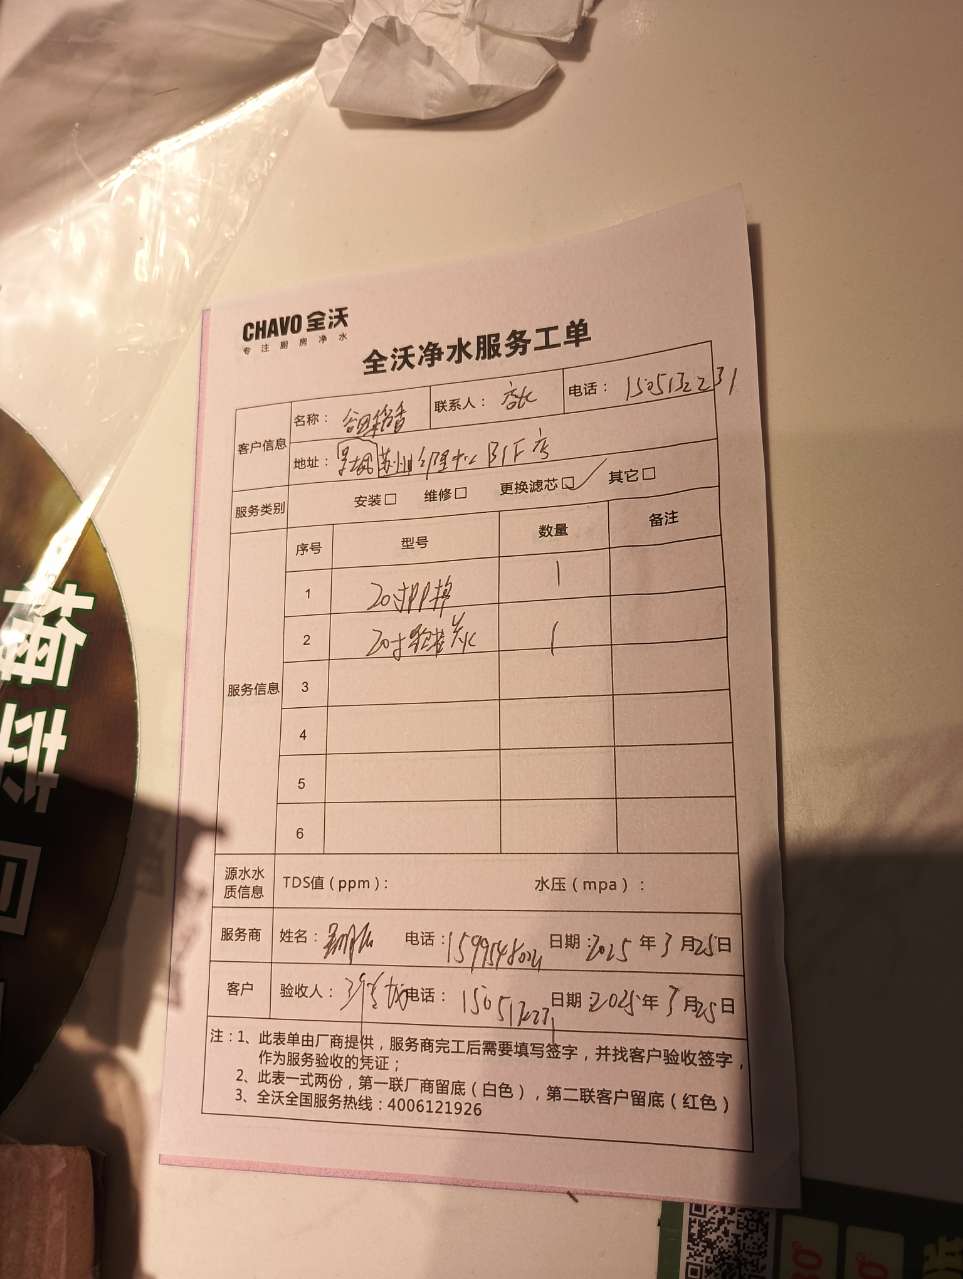 CHAVO 全沃
专注厨房净水
全沃净水服务工单
客户信息
名称： 稻香
联系人： 店长
电话： 15051322231
地址： 苏州 中心B1F店
服务类别
安装□ 维修□ 更换滤芯□✓ 其它□
服务信息
序号 型号 数量 备注
1 20寸PP棉 1
2 20寸 炭 1
3
4
5
6
源水水质信息
TDS值（ppm）： 水压（mpa）：
服务商 姓名： 电话： 日期：2025年3月25日
客户 验收人： 电话： 日期：2025年3月25日
注：1、此表单由厂商提供，服务商完工后需要填写签字，并找客户验收签字，
作为服务验收的凭证；
2、此表一式两份，第一联厂商留底（白色），第二联客户留底（红色）
3、全沃全国服务热线：4006121926